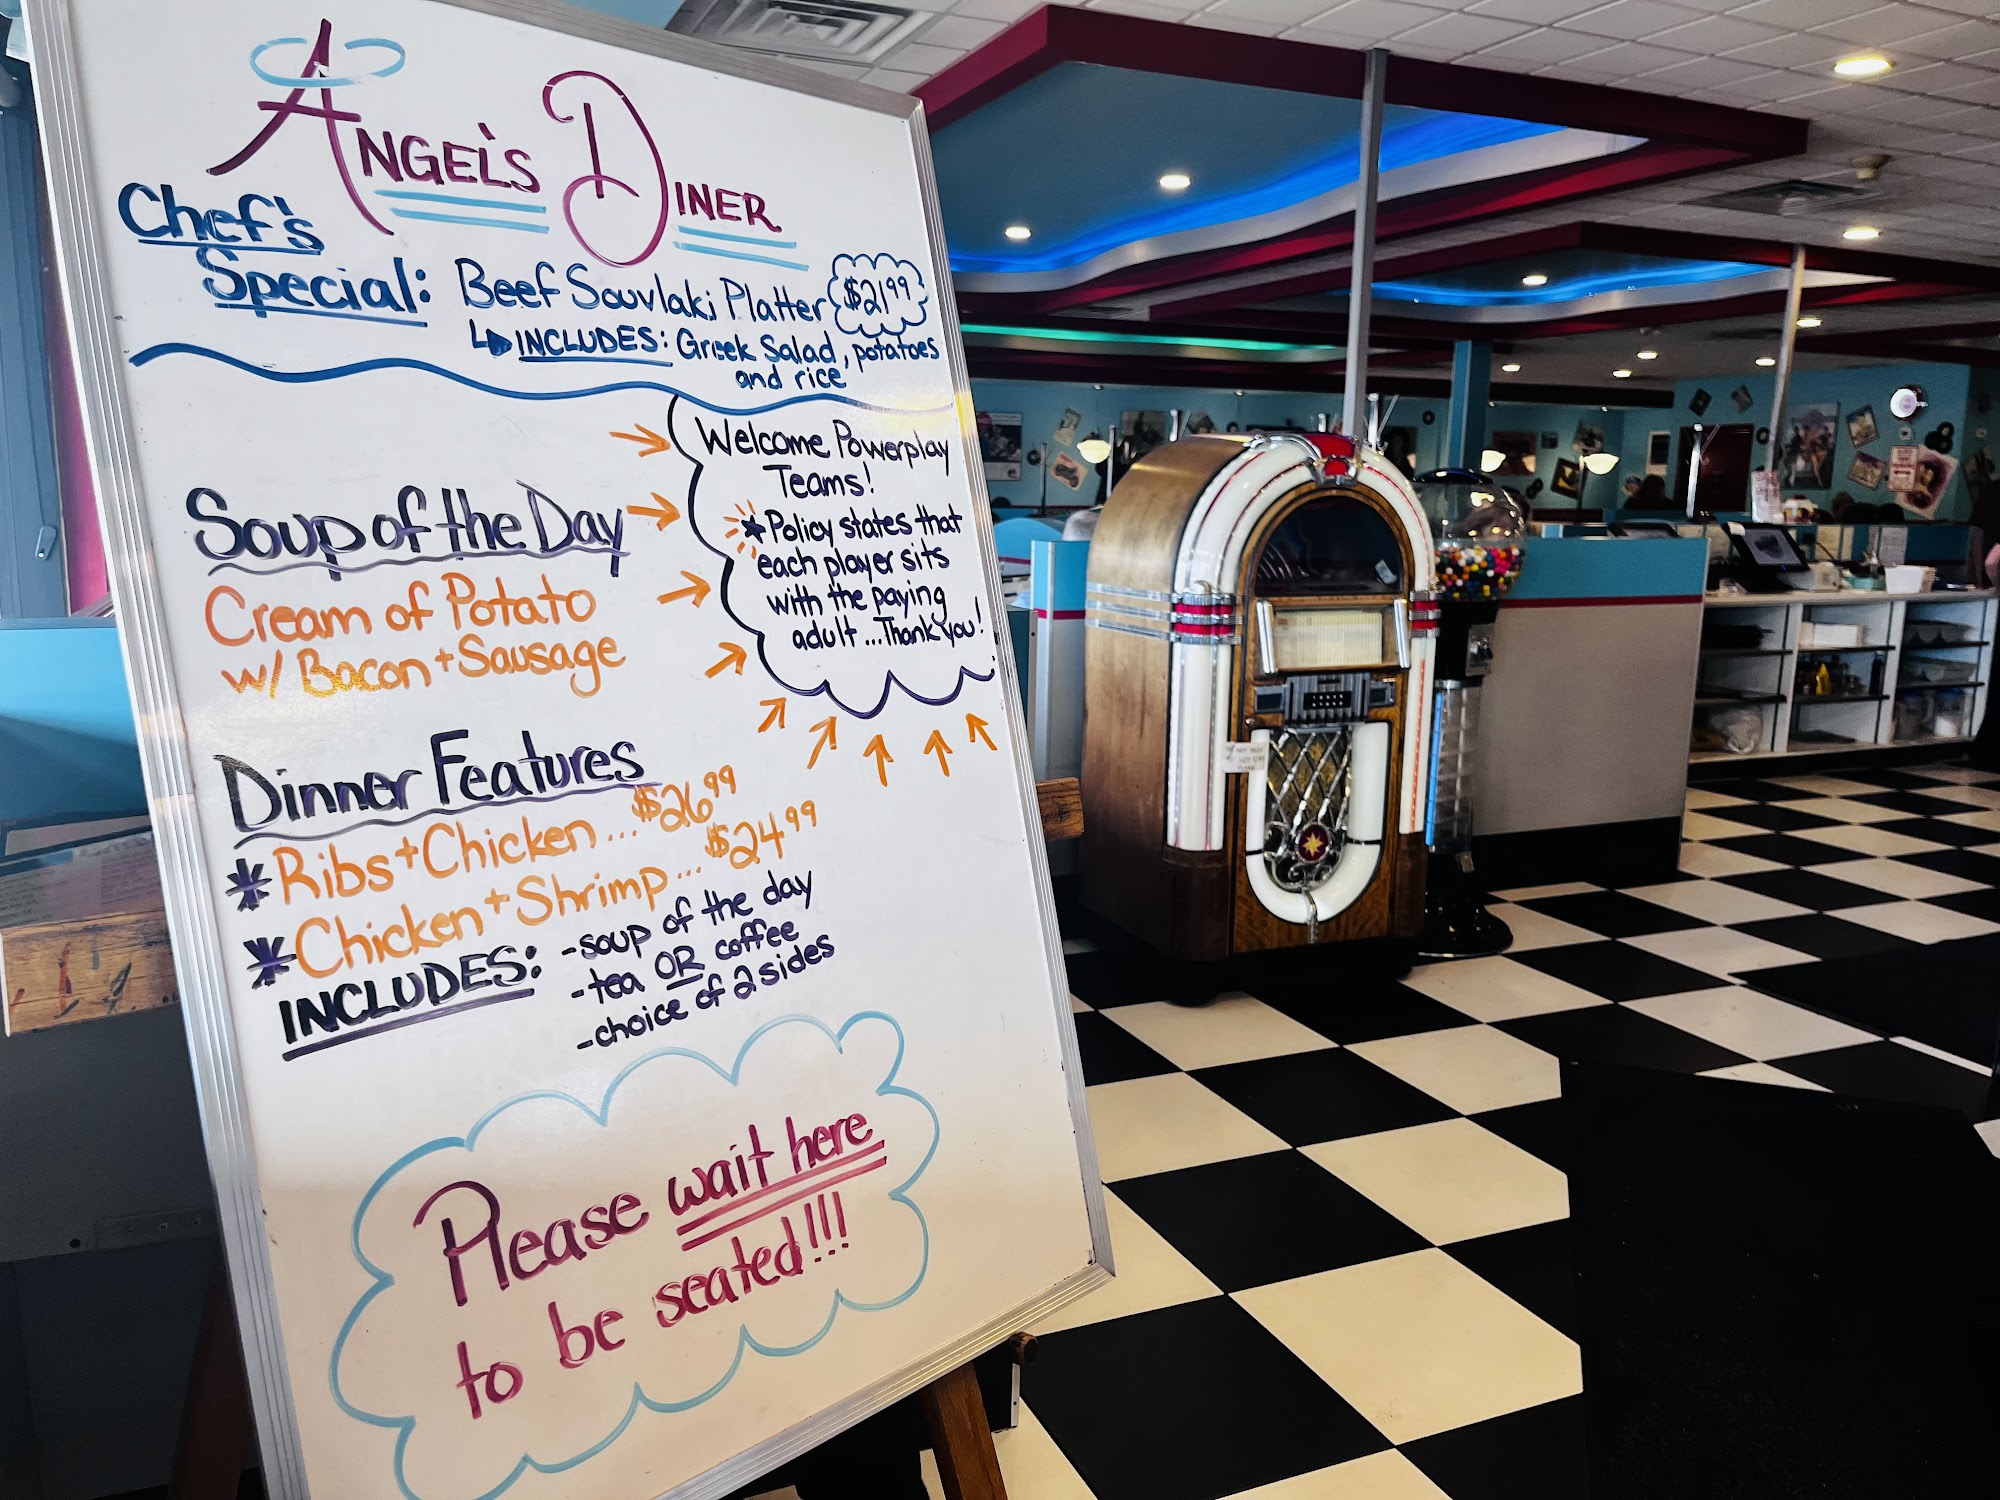 ANGEL'S DINER
Chef's
Special: Beef Souvlaki Platter $21.99
INCLUDES: Greek Salad, potatoes
and rice
Welcome Powerplay
Teams!
* Policy states that
each player sits
with the paying
adult...Thank you!
Soup of the Day
Cream of Potato
w/ Bacon + Sausage
Dinner Features
* Ribs + Chicken... $26.99
* Chicken + Shrimp... $24.99
INCLUDES: - soup of the day
- tea OR coffee
- choice of 2 sides
Please wait here
to be seated!!!